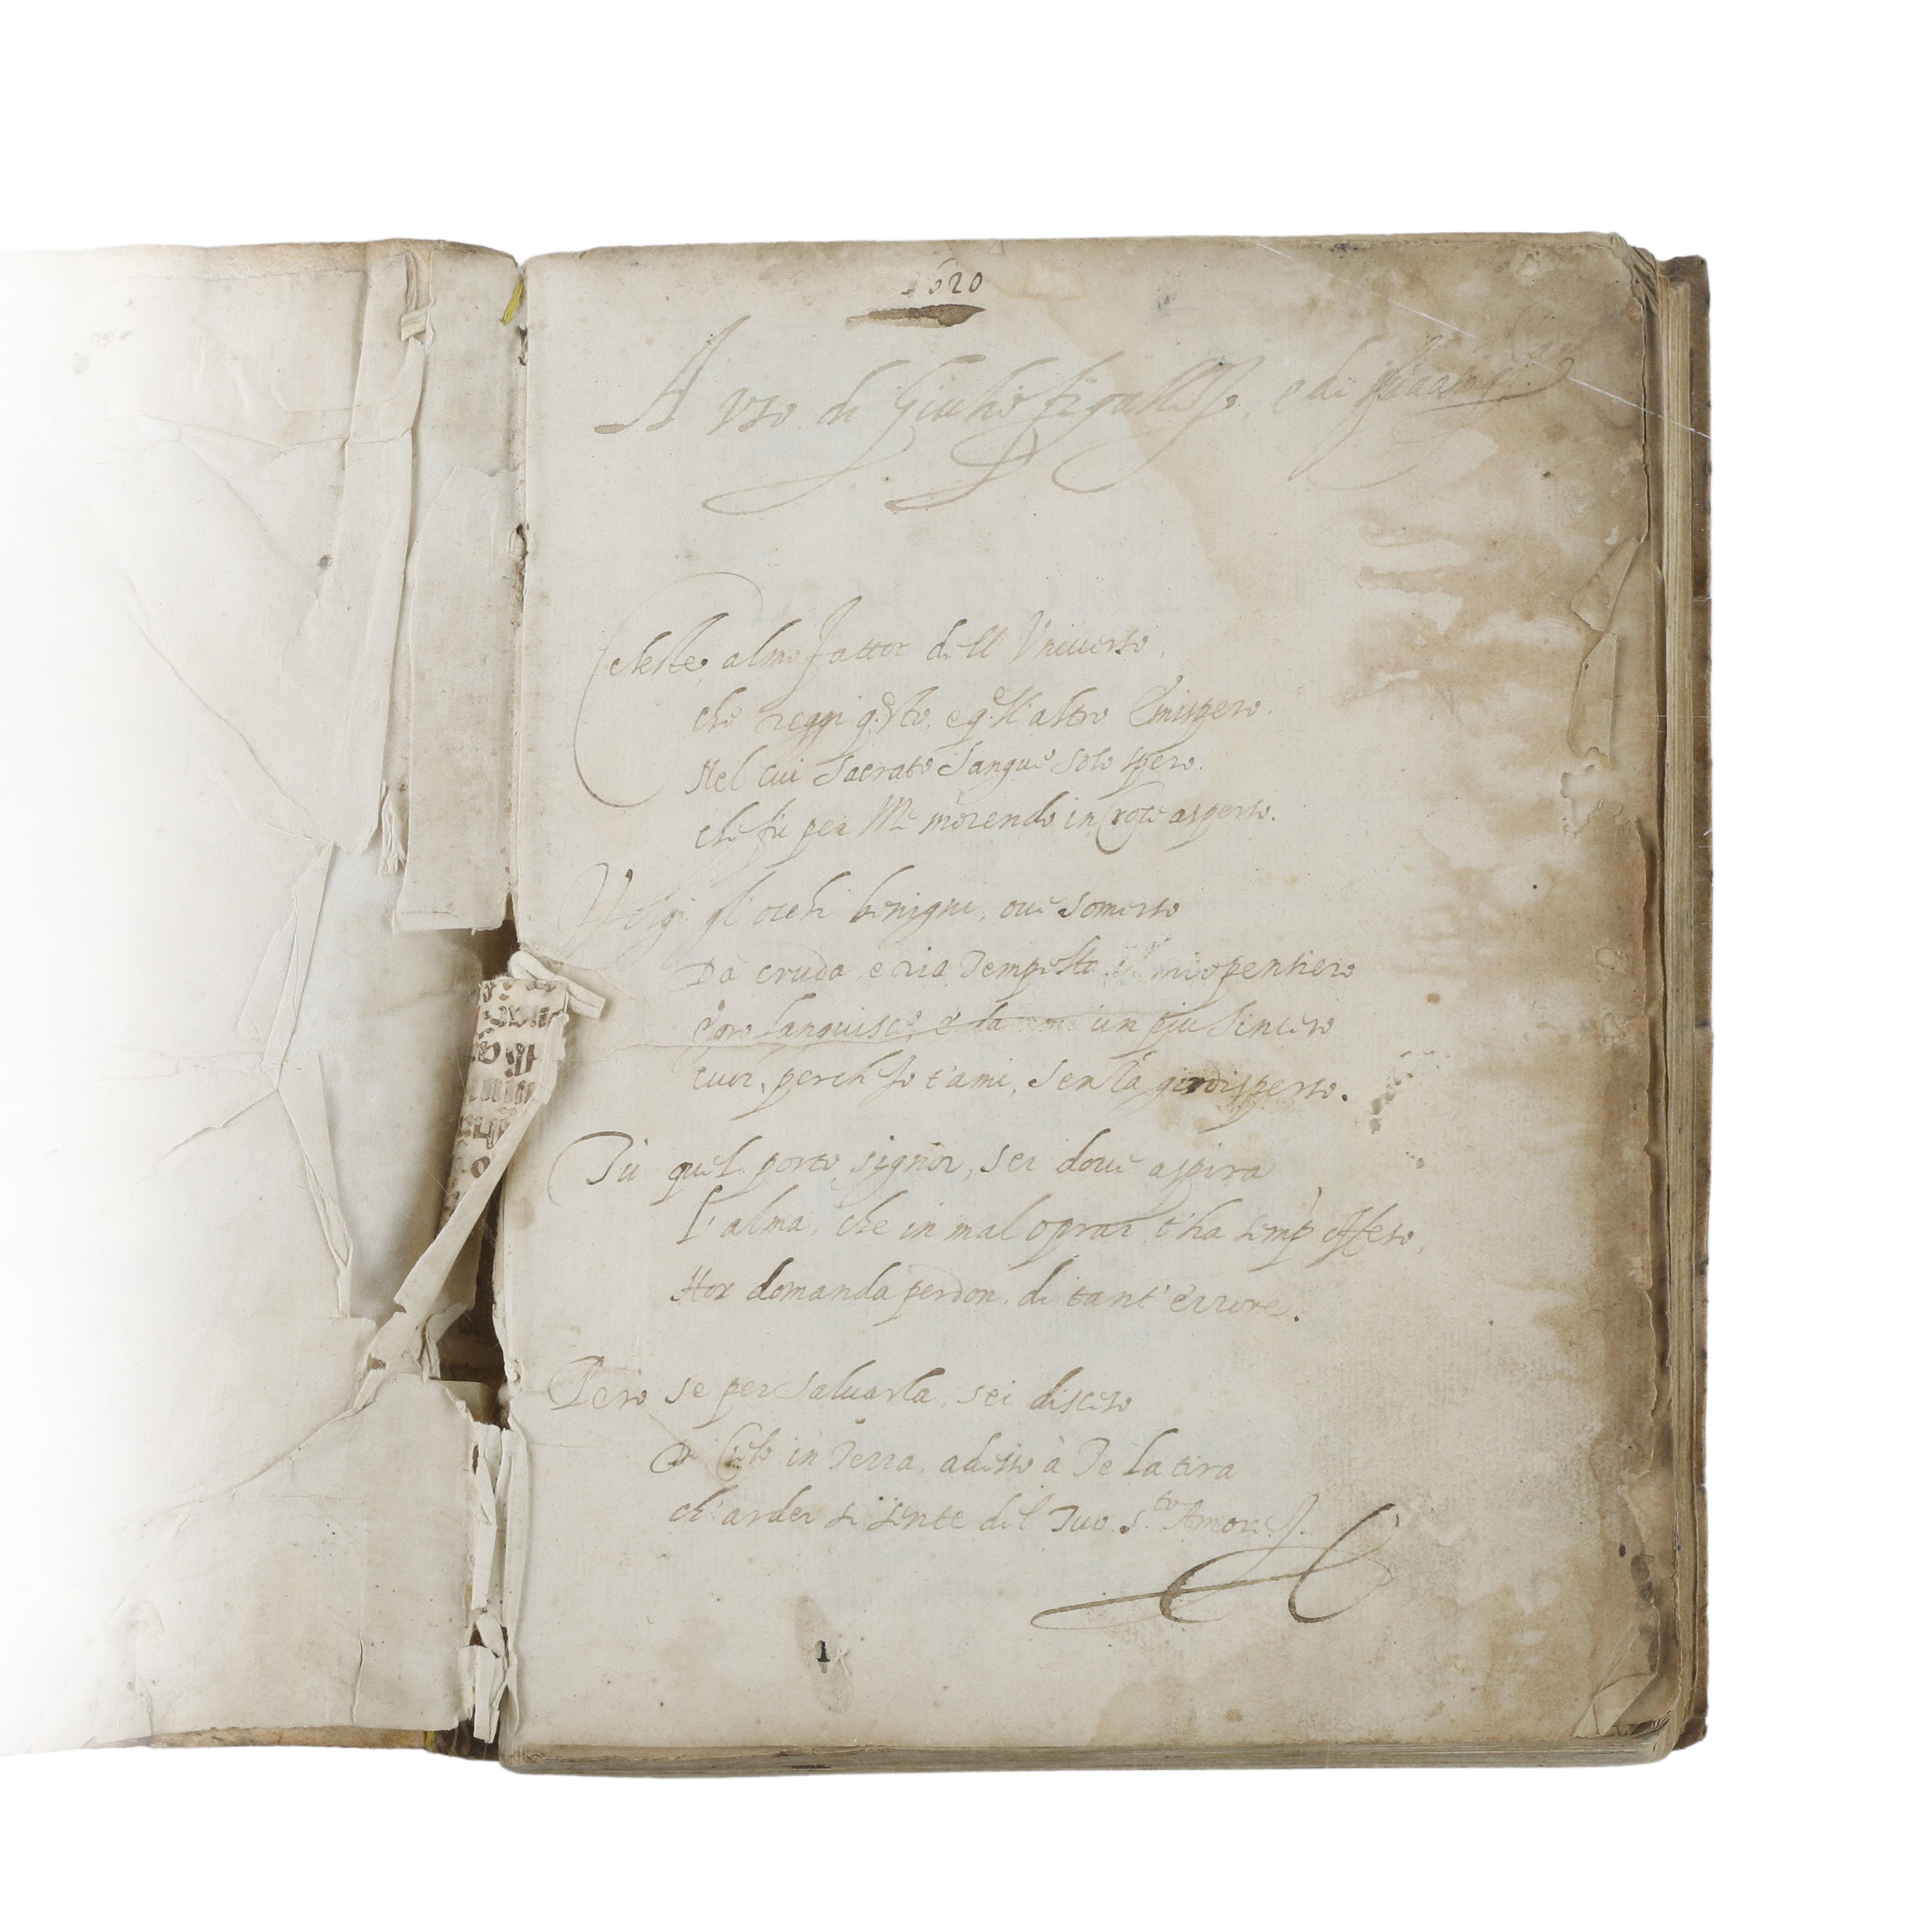 620
A vso di Giulio e di
Celeste, almo fattor dell Vniuerso,
che reggi q.sto, e q.ll'altro Emispero.
Nel cui Sacrato Sangue solo spero.
che fù per Me morendo in Croce asperso.
Volgi gl'occhi benigni, oue somerso
Da cruda, e ria Tempesta il mio pensiero
Pero languisce, e da un piu sincero
cuor, perch'Io t'ami, Senza gir disperso.
Tù quel porto signor, sei doue aspira
L'alma, che in mal oprar, t'ha semp offeso,
Hor domanda perdon, di tant'errore.
Pero se per saluarla, sei disceso
Di Cielo in Terra, adesso à Te la tira
ch'arder si sente del Tuo S.to Amore.
1